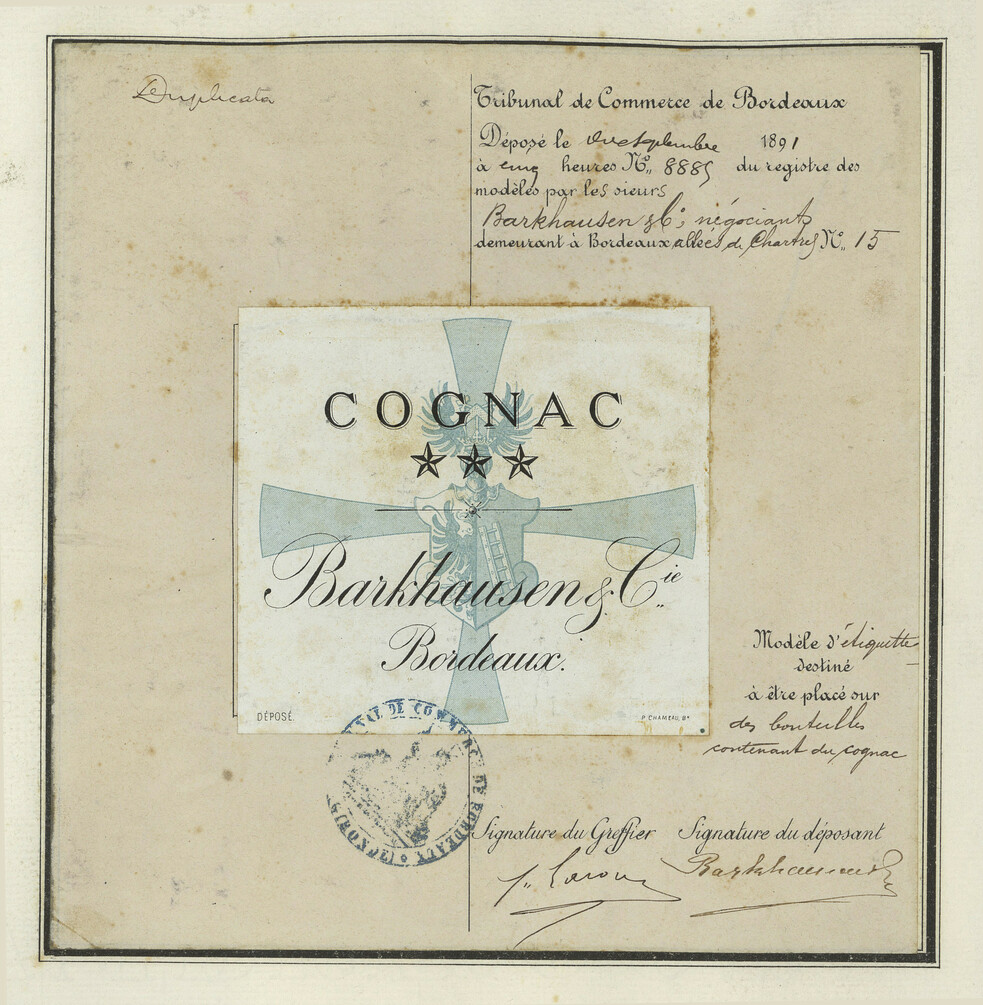 Duplicata
Tribunal de Commerce de Bordeaux
Déposé le onze septembre 1891
à cinq heures Nº 8885 du registre des
modèles par les sieurs
Barkhausen & Cº, négociants
demeurant à Bordeaux allées de Chartres Nº 15
COGNAC
Barkhausen & Cie
Bordeaux.
DÉPOSÉ.
P. CHAMEAU, Bx
Modèle d'étiquette
destiné
à être placé sur
des bouteilles
contenant du cognac
TRIBUNAL DE COMMERCE DE BORDEAUX
(GIRONDE)
Signature du Greffier Signature du déposant
Barkhausen & Cº